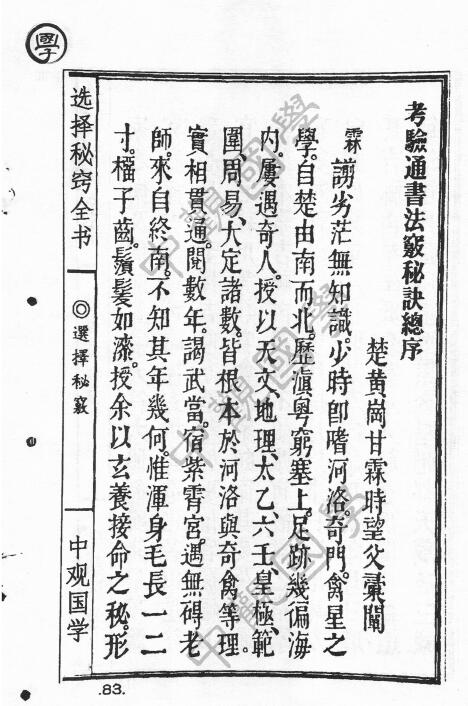 考驗通書法竅秘訣總序
楚黃崗甘霖時望父彙闡
霖謭劣茫無知識。少時卽嗜河洛。奇門。禽星之
學。自楚由南而北。歷滇粵窮塞上。足跡幾徧海
內。屢遇奇人。授以天文、地理、太乙、六壬、皇極、範
圍、周易、大定諸數。皆根本於河洛與奇禽等理。
實相貫通。閱數年。謁武當。宿紫霄宮。遇無碍老
師。來自終南。不知其年幾何。惟渾身毛長一二
寸。櫑子齒。鬚髮如漆。授余以玄養接命之秘。形
選择秘窍全书
◎選擇秘竅
中观国学
.83.
國學
中觀國學
中觀國學